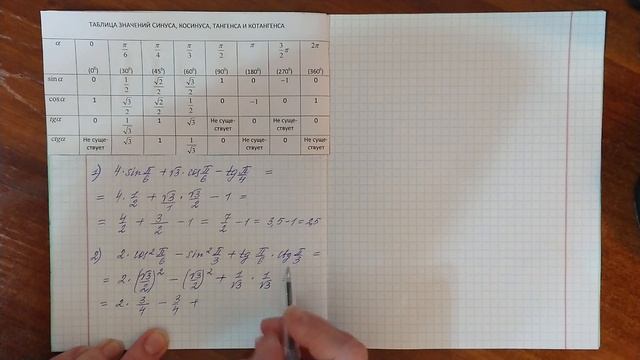 ТАБЛИЦА ЗНАЧЕНИЙ СИНУСА, КОСИНУСА, ТАНГЕНСА И КОТАНГЕНСА
α 0 π/6 π/4 π/3 π/2 π 3/2 π 2π
(0⁰) (30⁰) (45⁰) (60⁰) (90⁰) (180⁰) (270⁰) (360⁰)
sin α 0 1/2 √2/2 √3/2 1 0 −1 0
cos α 1 √3/2 √2/2 1/2 0 −1 0 1
tg α 0 1/√3 1 √3 Не существует 0 Не существует 0
ctg α Не существует √3 1 1/√3 0 Не существует 0 Не существует
1) 4·sin π/6 + √3·cos π/6 − tg π/4 =
= 4·1/2 + √3/1·√3/2 − 1 =
= 4/2 + 3/2 − 1 = 7/2 − 1 = 3,5−1=2,5
2) 2·cos² π/6 − sin² π/3 + tg π/6 · ctg π/3 =
= 2·(√3/2)² − (√3/2)² + 1/√3 · 1/√3
= 2·3/4 − 3/4 +